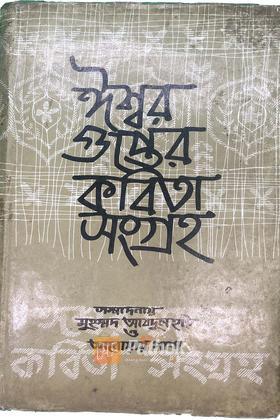 ঈশ্বর
গুপ্তের
কবিতা
সংগ্রহ
সম্পাদনায়
মুহম্মদ আবদুল হাই
ও
কবিতা সংগ্রহ